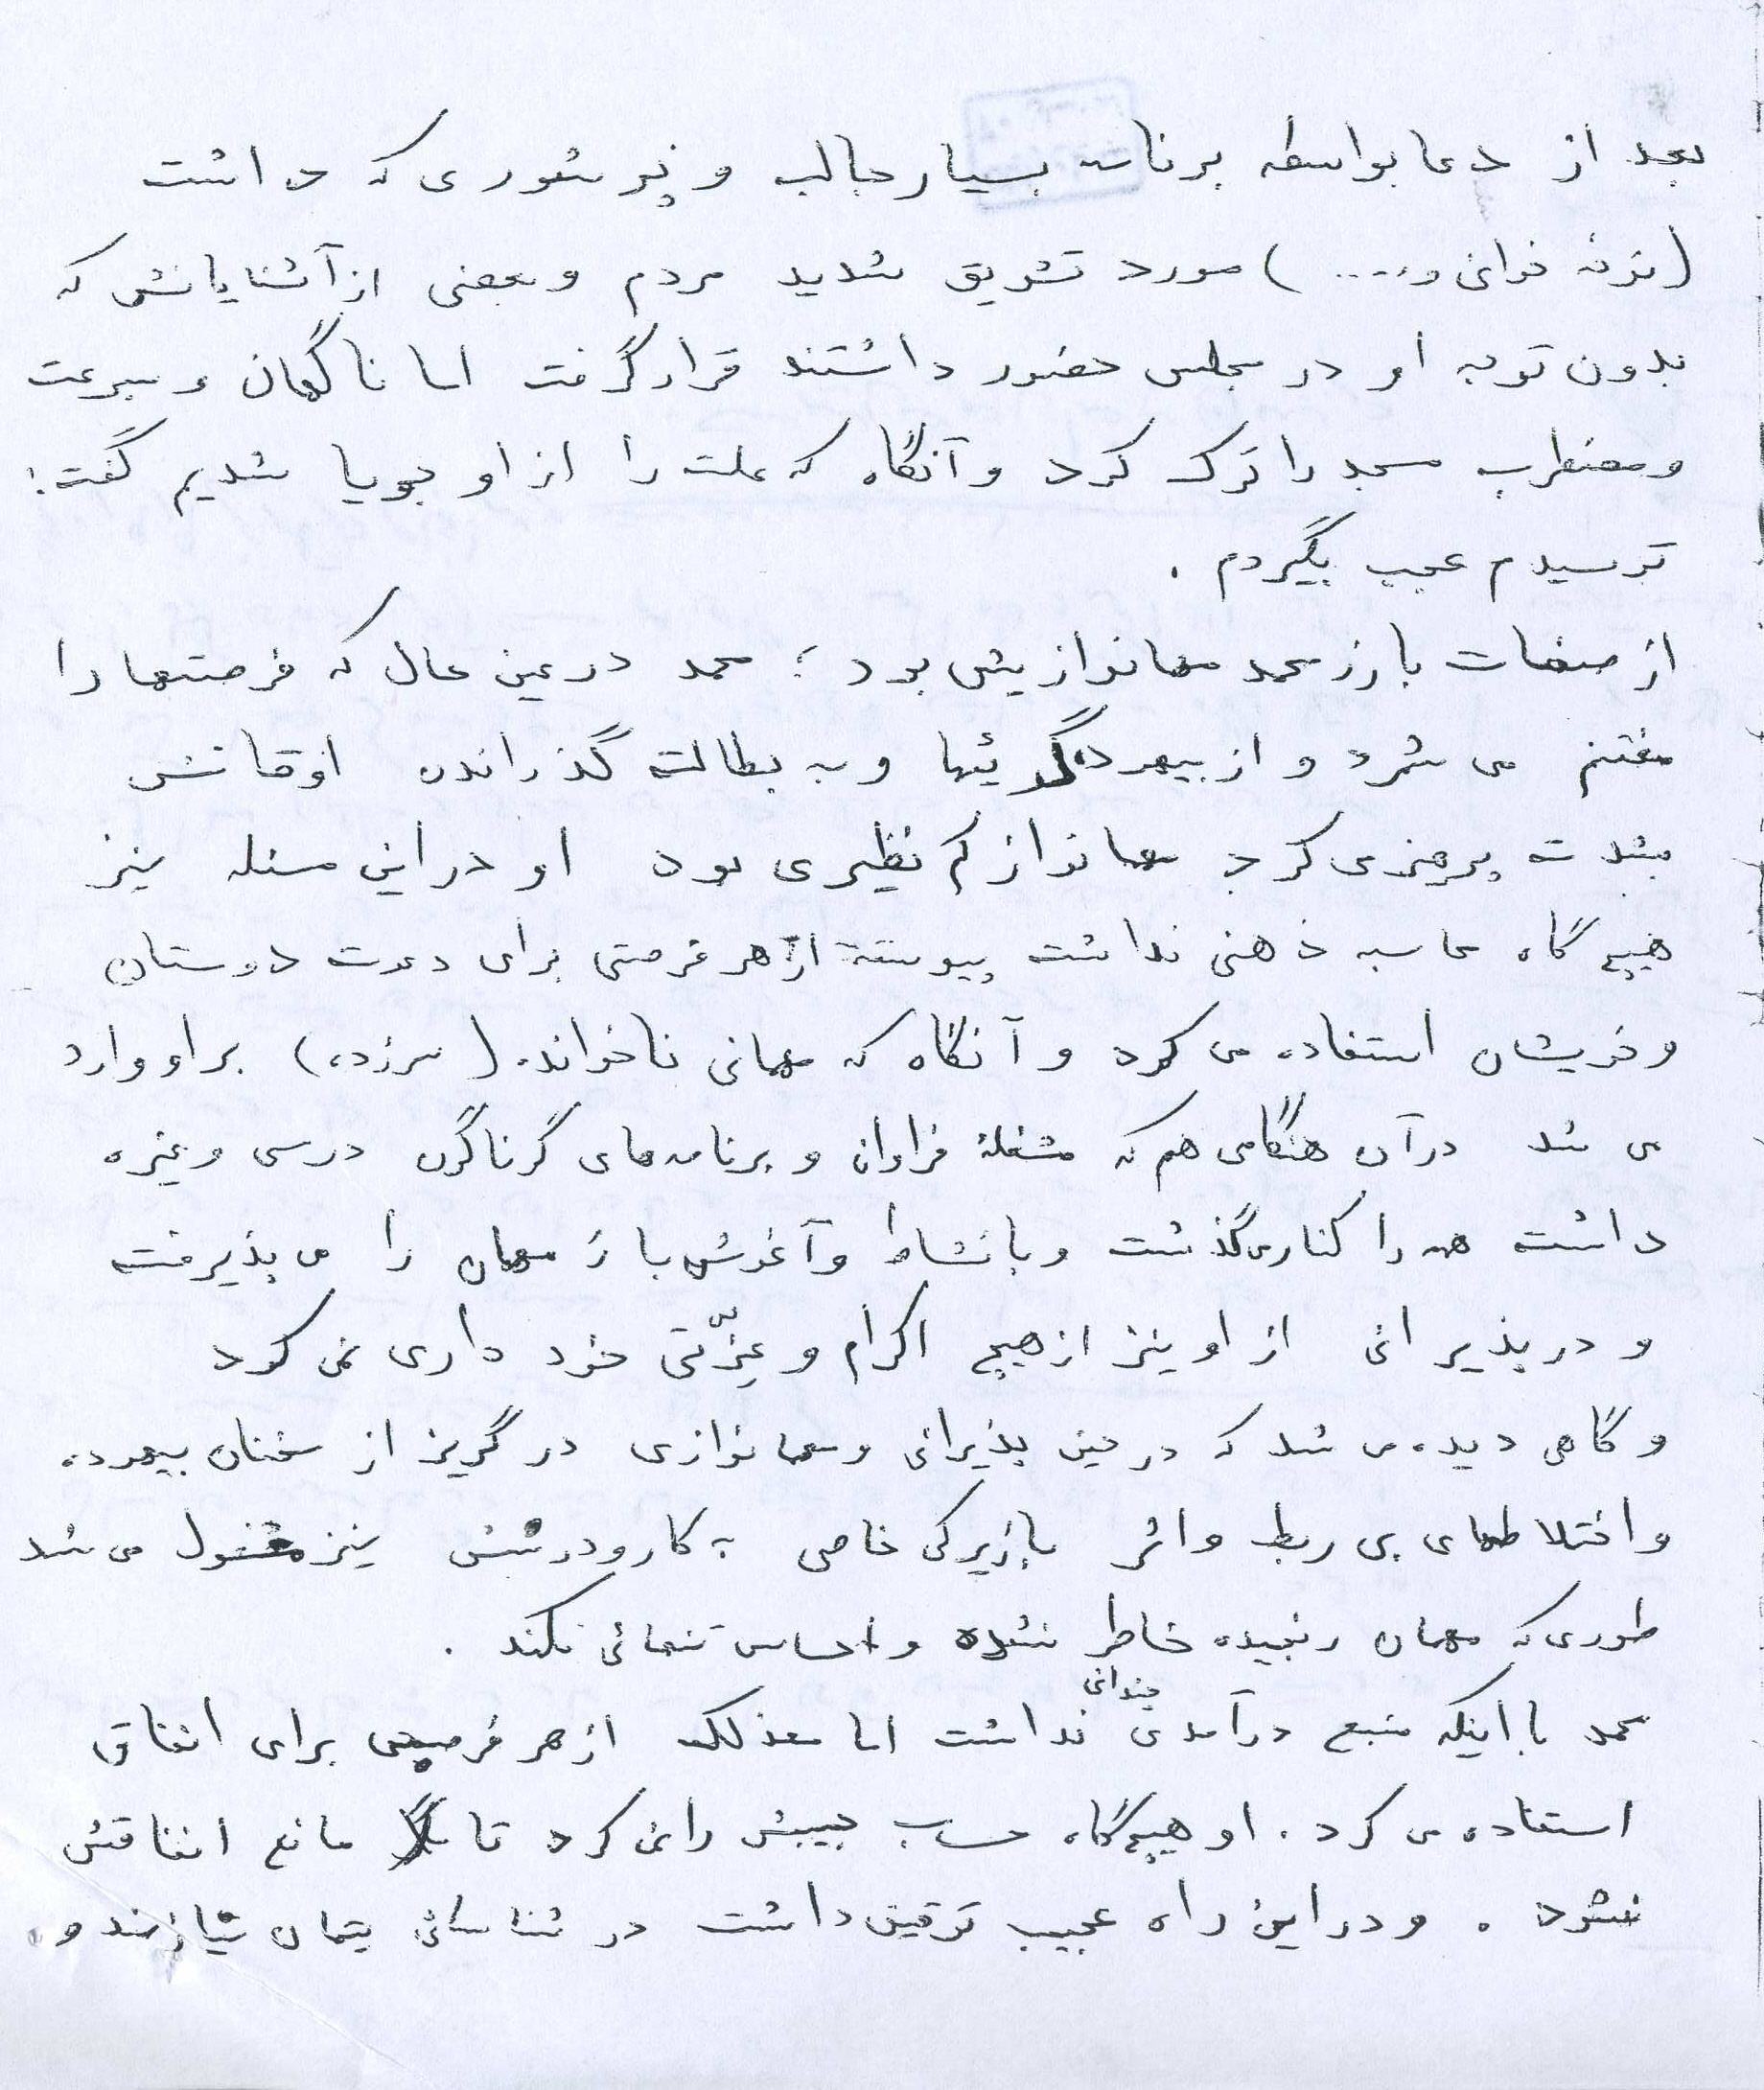 بعد از دعا بواسطه برنامه بسیار جالب و پر شوری که داشت
(نوحه خوانی و....) مورد تشویق شدید مردم و بعضی از آشنایانش که
بدون توجه او در مجلس حضور داشتند قرار گرفت اما ناگهان و بسرعت
و مضطرب مسجد را ترک کرد و آنگاه که علت را از او جویا شدیم گفت:
ترسیدم عجب بگیردم .
از صفات بارز محمد مهمانوازیش بود ؛ محمد در عین حال که فرصتها را
مغتنم می شمرد و از بیهوده گوئیها و به بطالت گذراندن اوقاتش
بشدت پرهیز می کرد مهمانواز کم نظیری بود او در این مسئله نیز
هیچ گاه محاسبه ذهنی نداشت پیوسته از هر فرصتی برای دعوت دوستان
و خویشان استفاده می کرد و آنگاه که مهمانی ناخوانده (سرزده) بر او وارد
می شد در آن هنگامی هم که مشغلهٔ فراوان و برنامه های گوناگون درسی و غیره
داشت همه را کنار می گذشت و با نشاط و آغوش باز مهمان را می پذیرفت
و در پذیرائی از او نیز از هیچ اکرام و عزّتی خود داری نمی کرد
و گاهی دیده می شد که در حین پذیرائی و مهمانوازی در گریز از سخنان بیهوده
و اختلاطهای بی ربط و اثر با زیرکی خاصی به کار و درسش نیز مشغول می شد
طوری که مهمان رنجیده خاطر نشده و احساس تنهائی نکند .
محمد با اینکه منبع درآمدی چندانی نداشت اما معذلک از هر فرصتی برای انفاق
استفاده می کرد . او هیچ گاه حساب جیبش را نمی کرد تا مانع انفاقش
نشود . و در این راه عجیب توفیق داشت در شناسائی یتیمان نیازمند و